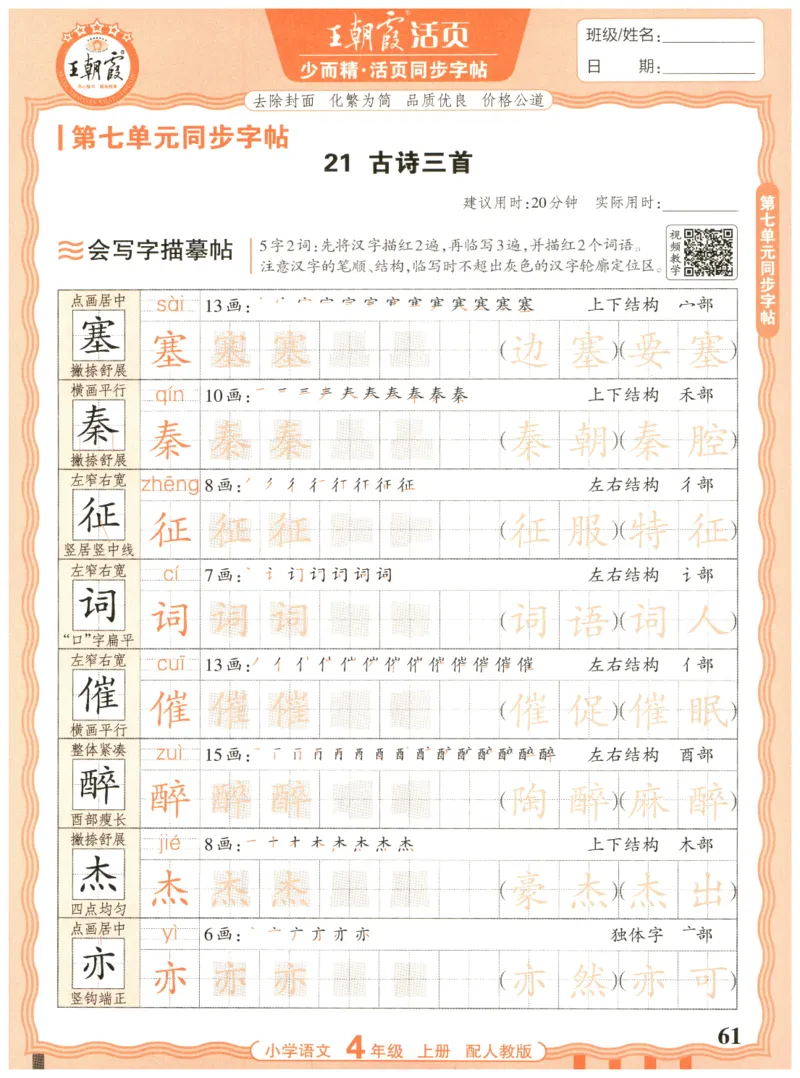 王朝霞
王朝霞活页
少而精·活页同步字帖
班级/姓名:
日 期:
去除封面 化繁为简 品质优良 价格公道
第七单元同步字帖
21 古诗三首
建议用时:20分钟 实际用时:
会写字描摹帖
5字2词:先将汉字描红2遍,再临写3遍,并描红2个词语。
注意汉字的笔顺、结构,临写时不超出灰色的汉字轮廓定位区。
视频教学
第七单元同步字帖
点画居中 sài 13画: 上下结构 宀部
塞 塞 塞 塞 (边塞)(要塞)
撇捺舒展
横画平行 qín 10画: 上下结构 禾部
秦 秦 秦 秦 (秦朝)(秦腔)
撇捺舒展
左窄右宽 zhēng 8画: 左右结构 彳部
征 征 征 征 (征服)(特征)
竖居竖中线
左窄右宽 cí 7画: 左右结构 讠部
词 词 词 词 (词语)(词人)
“口”字扁平
左窄右宽 cuī 13画: 左右结构 亻部
催 催 催 催 (催促)(催眠)
横画平行
整体紧凑 zuì 15画: 左右结构 酉部
醉 醉 醉 醉 (陶醉)(麻醉)
酉部瘦长
撇捺舒展 jié 8画: 上下结构 木部
杰 杰 杰 杰 (豪杰)(杰出)
四点均匀
点画居中 yì 6画: 独体字 亠部
亦 亦 亦 亦 (亦然)(亦可)
竖钩端正
61
小学语文 4年级 上册 配人教版